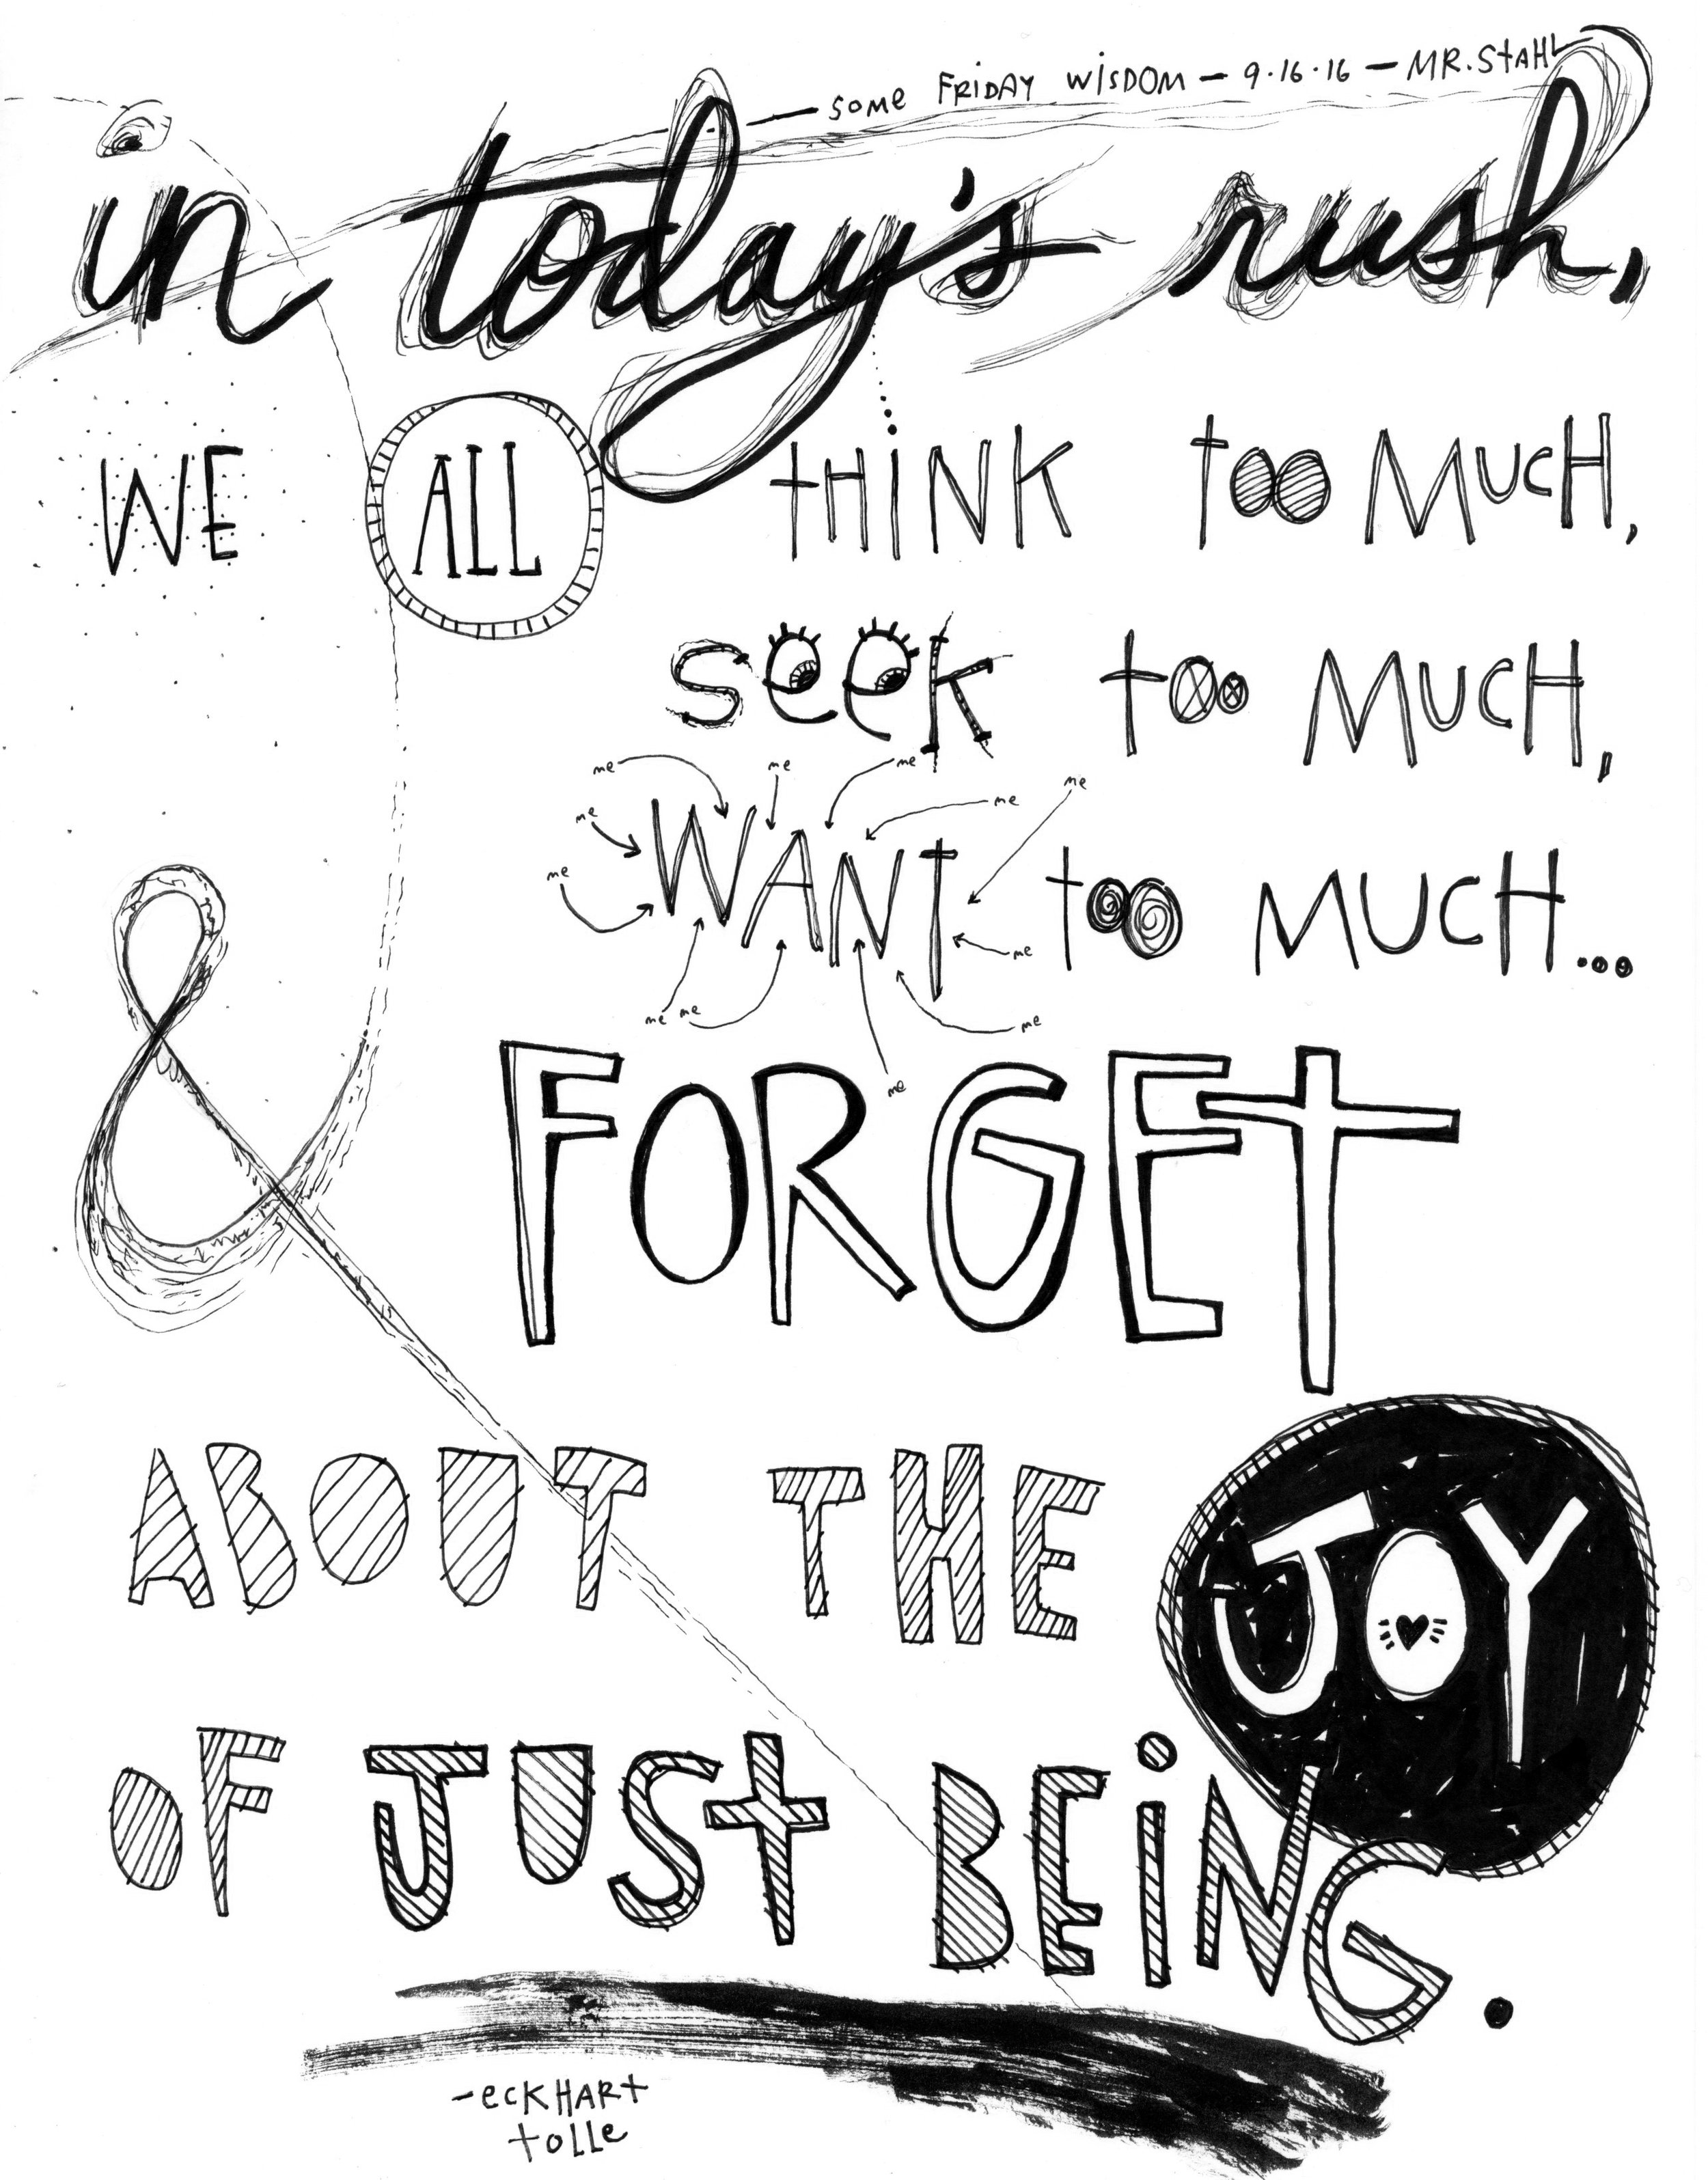 — SOME FRIDAY WISDOM — 9.16.16 — MR. STAHL
in today's rush,
WE ALL THINK TOO MUCH,
SEEK TOO MUCH,
me me me
me me me
WANT TOO MUCH...
me me
me me me
me
& FORGET
ABOUT THE JOY
OF JUST BEING.
- ECKHART
TOLLE